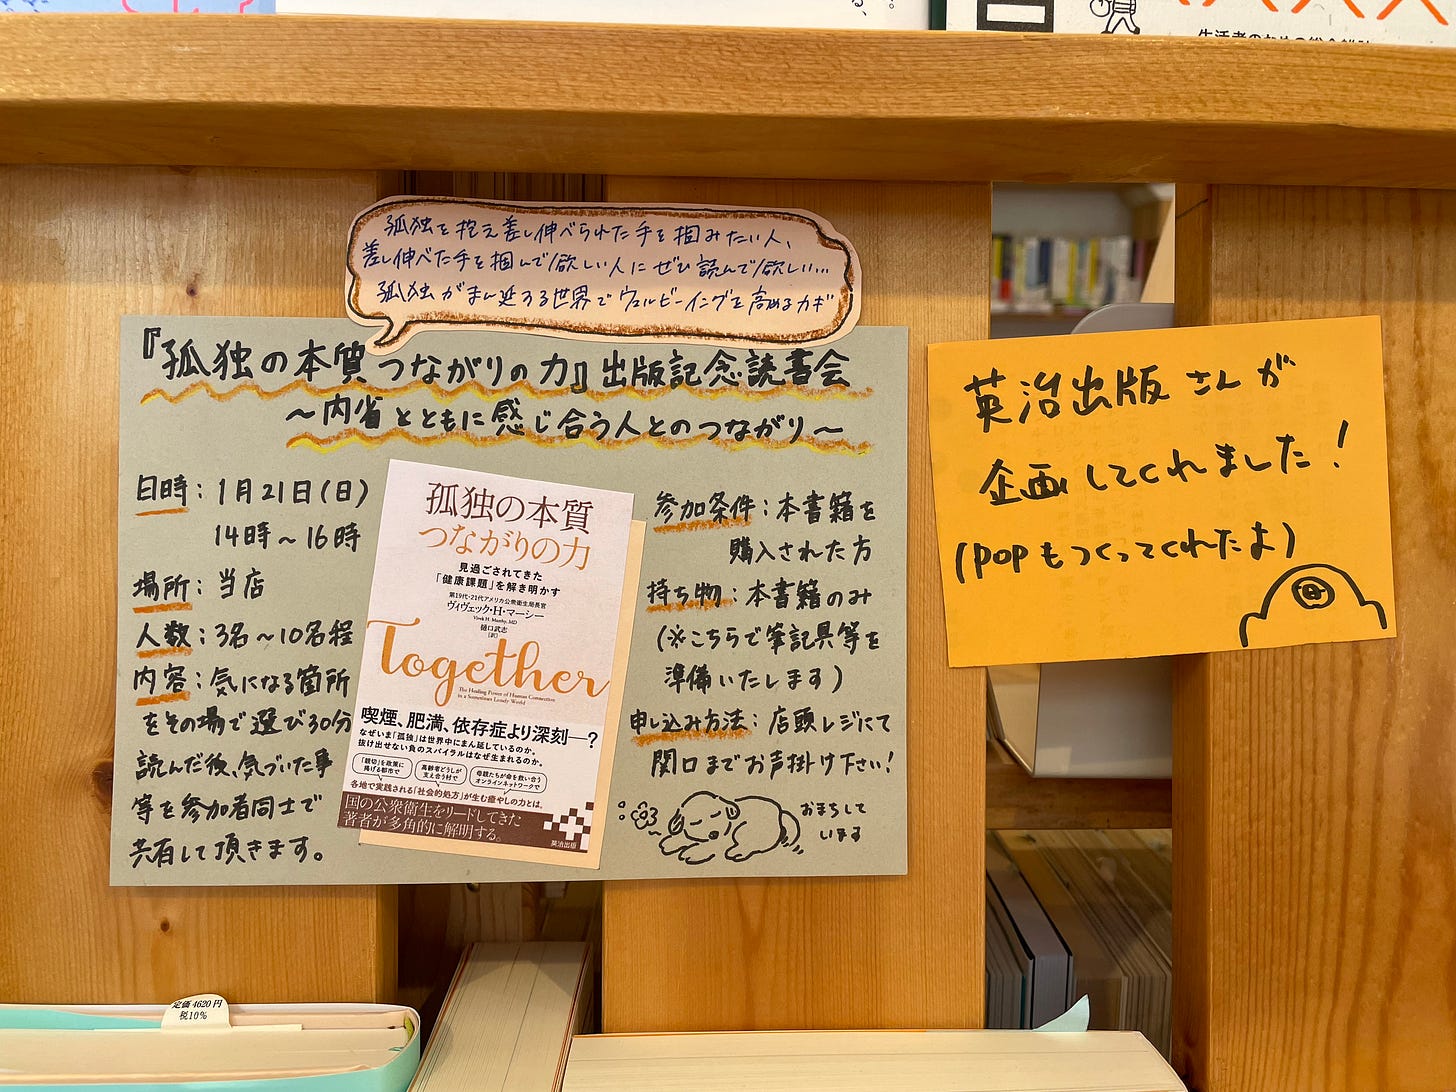 生活者のための総合雑誌
孤独を抱え差し伸べられた手を掴みたい人、
差し伸べた手を掴んで欲しい人にぜひ読んで欲しい…
孤独がまん延する世界でウェルビーイングを高めるカギ
『孤独の本質つながりの力』出版記念読書会
〜内省とともに感じ合う人とのつながり〜
日時：1月21日(日)
14時〜16時
場所：当店
人数：3名〜10名程
内容：気になる箇所
をその場で選び30分
読んだ後、気づいた事
等を参加者同士で
共有して頂きます。
孤独の本質
つながりの力
見過ごされてきた
「健康課題」を解き明かす
第19代・21代アメリカ公衆衛生局長官
ヴィヴェック・H・マーシー
Vivek H. Murthy, MD
樋口武志
[訳]
Together
The Healing Power of Human Connection
in a Sometimes Lonely World
喫煙、肥満、依存症より深刻―？
なぜいま「孤独」は世界中にまん延しているのか。
抜け出せない負のスパイラルはなぜ生まれるのか。
「親切」を政策に
掲げる都市で
高齢者どうしが
支え合う村で
母親たちが命を救い合う
オンラインネットワークで
各地で実践される「社会的処方」が生む癒やしの力とは。
国の公衆衛生をリードしてきた
著者が多角的に解明する。
英治出版
参加条件：本書籍を
購入された方
持ち物：本書籍のみ
(※こちらで筆記具等を
準備いたします)
申し込み方法：店頭レジにて
関口までお声掛け下さい！
おまちして
います
英治出版さんが
企画してくれました！
(POPもつくってくれたよ)
定価4620円
税10%